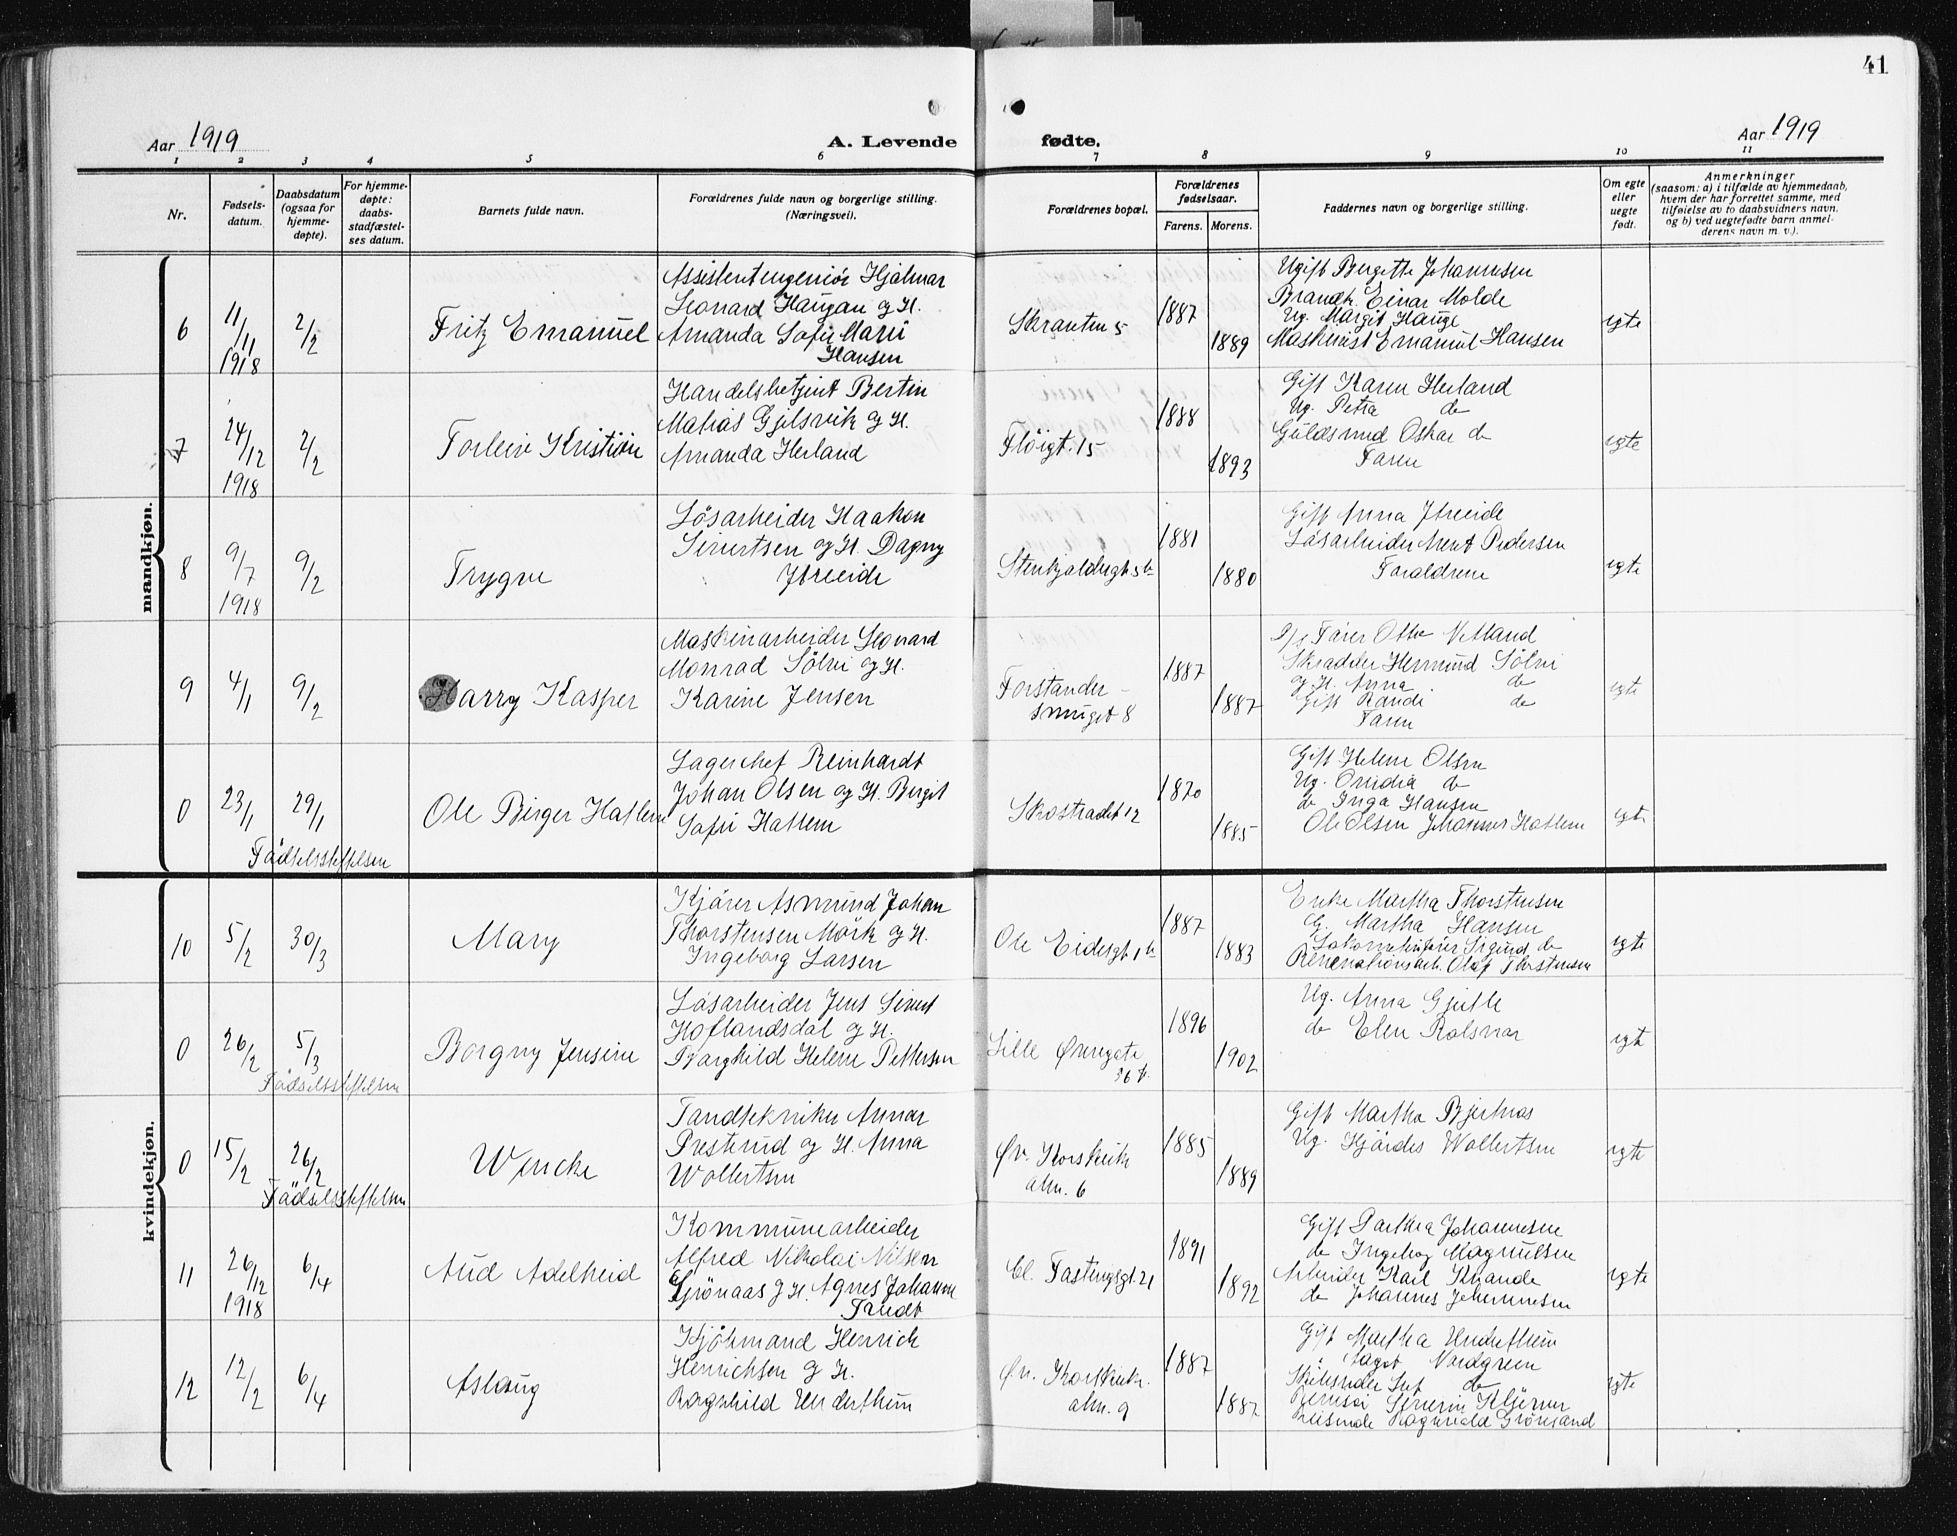 41
Aar 1919
A. Levende fødte.
Aar 1919
1 2 3 4 5 6 7 8 9 10 11
Nr.
Fødsels-
datum.
Daabsdatum
(ogsaa for
hjemme-
døpte).
For hjemme-
døpte:
daabs-
stadfæstel-
ses datum.
Barnets fulde navn.
Forældrenes fulde navn og borgerlige stilling.
(Næringsvei).
Forældrenes bopæl.
Forældrenes
fødselsaar.
Farens. Morens.
Faddernes navn og borgerlige stilling.
Om egte
eller
uegte
født.
Anmerkninger
(saasom: a) i tilfælde av hjemmedaab,
hvem der har forrettet samme, med
tilføielse av to daabsvidners navn,
og b) ved uegtefødte barn anmel-
derens navn m. v.).
mandkjøn.
6
11/11
1918
2/2
Fritz Emanuel
Assistentingeniør Hjalmar
Leonard Haugan og H.
Amanda Sofie Marie
Hansen
Skranten 5
1887
1889
Ugift Bergitte Johannesen
Brandk. Einar Molde
Ug. Margit Hauge
Maskinist Emanuel Hansen
egte
7
24/12
1918
2/2
Torleiv Kristian
Handelsbetjent Bertin
Matias Gjelsvik og H.
Amanda Herland
Fløigt. 15
1888
1893
Gift Karen Herland
Ug. Petra do
Guldsmed Oskar do
Faren
egte
8
9/7
1918
9/2
Trygve
Løsarbeider Haakon
Sivertsen og H. Dagny
Ytreeide
Stenkjeldergt 5 b
1881
1880
Gift Anna Ytreeide
Løsarbeider Arent Pedersen
Forældrene
egte
9
4/1
9/2
Harry Kasper
Maskinarbeider Leonard
Monrad Sølvi og H.
Karine Jensen
Forstander-
smuget 8
1887
1887
Fører Othe
Skrædder Hermund Sølvi
og H. Anna do
Gift Randi do
Faren
egte
0
23/1
29/1
Fødselsstiftelsen
Ole Birger Hatlem
Lagerchef Reinhardt
Johan Olsen og H. Birgit
Sofie Hatlem
Skostrædet 12
1870
1885
Gift Helene Olsen
Ug. Ovidia do
do Inga Hansen
Ole Olsen Johannes Hatlem
egte
kvindekjøn.
10
5/2
30/3
Mary
Kjører Asmund Johan
Thorstensen Mørk og H.
Ingeborg Larsen
Ole Eidesgt 1 b
1887
1883
Enke Martha Thorstensen
G. Martha Hansen
Lokomotivfører Sigurd do
Renovationsarb. Olaf Thorstensen
egte
0
26/2
5/3
Fødselsstiftelsen
Borgny Jensine
Løsarbeider Jens Sivert
Hoflandsdal og H.
Borghild Helene Pettersen
Lille Øvregate
36
1896
1902
Ug. Anna Gjertle
do Elen Rolsvaar
egte
0
15/2
26/2
Fødselsstiftelsen
Wencke
Tandtekniker Annar
Presterud og H. Anna
Wollertsen
Øv. Korskirk
alm. 6
1885
1889
Gift Martha Bjertnæs
Ug. Hjørdes Wollertsen
egte
11
26/12
1918
6/4
Aud Adelheid
Kommunearbeider
Alfred Nikolai Nilsen
Grønaas og H. Agnes Johanne
Tandt
Cl. Fastingsgt. 21
1891
1892
Gift Parthea Johannesen
do Ingeborg Magnussen
Arbeider Karl Knande
do Johannes Johannesen
egte
12
12/2
6/4
Aslaug
Kjøbmand Henrich
Henrichsen og H.
Ragnhild Underthun
Øv. Korskirk.
alm. 9
1887
1887
Gift Martha Underthun
Aagot Nordgreen
do
Severin
Reisende Ragnvald Grönsand
egte